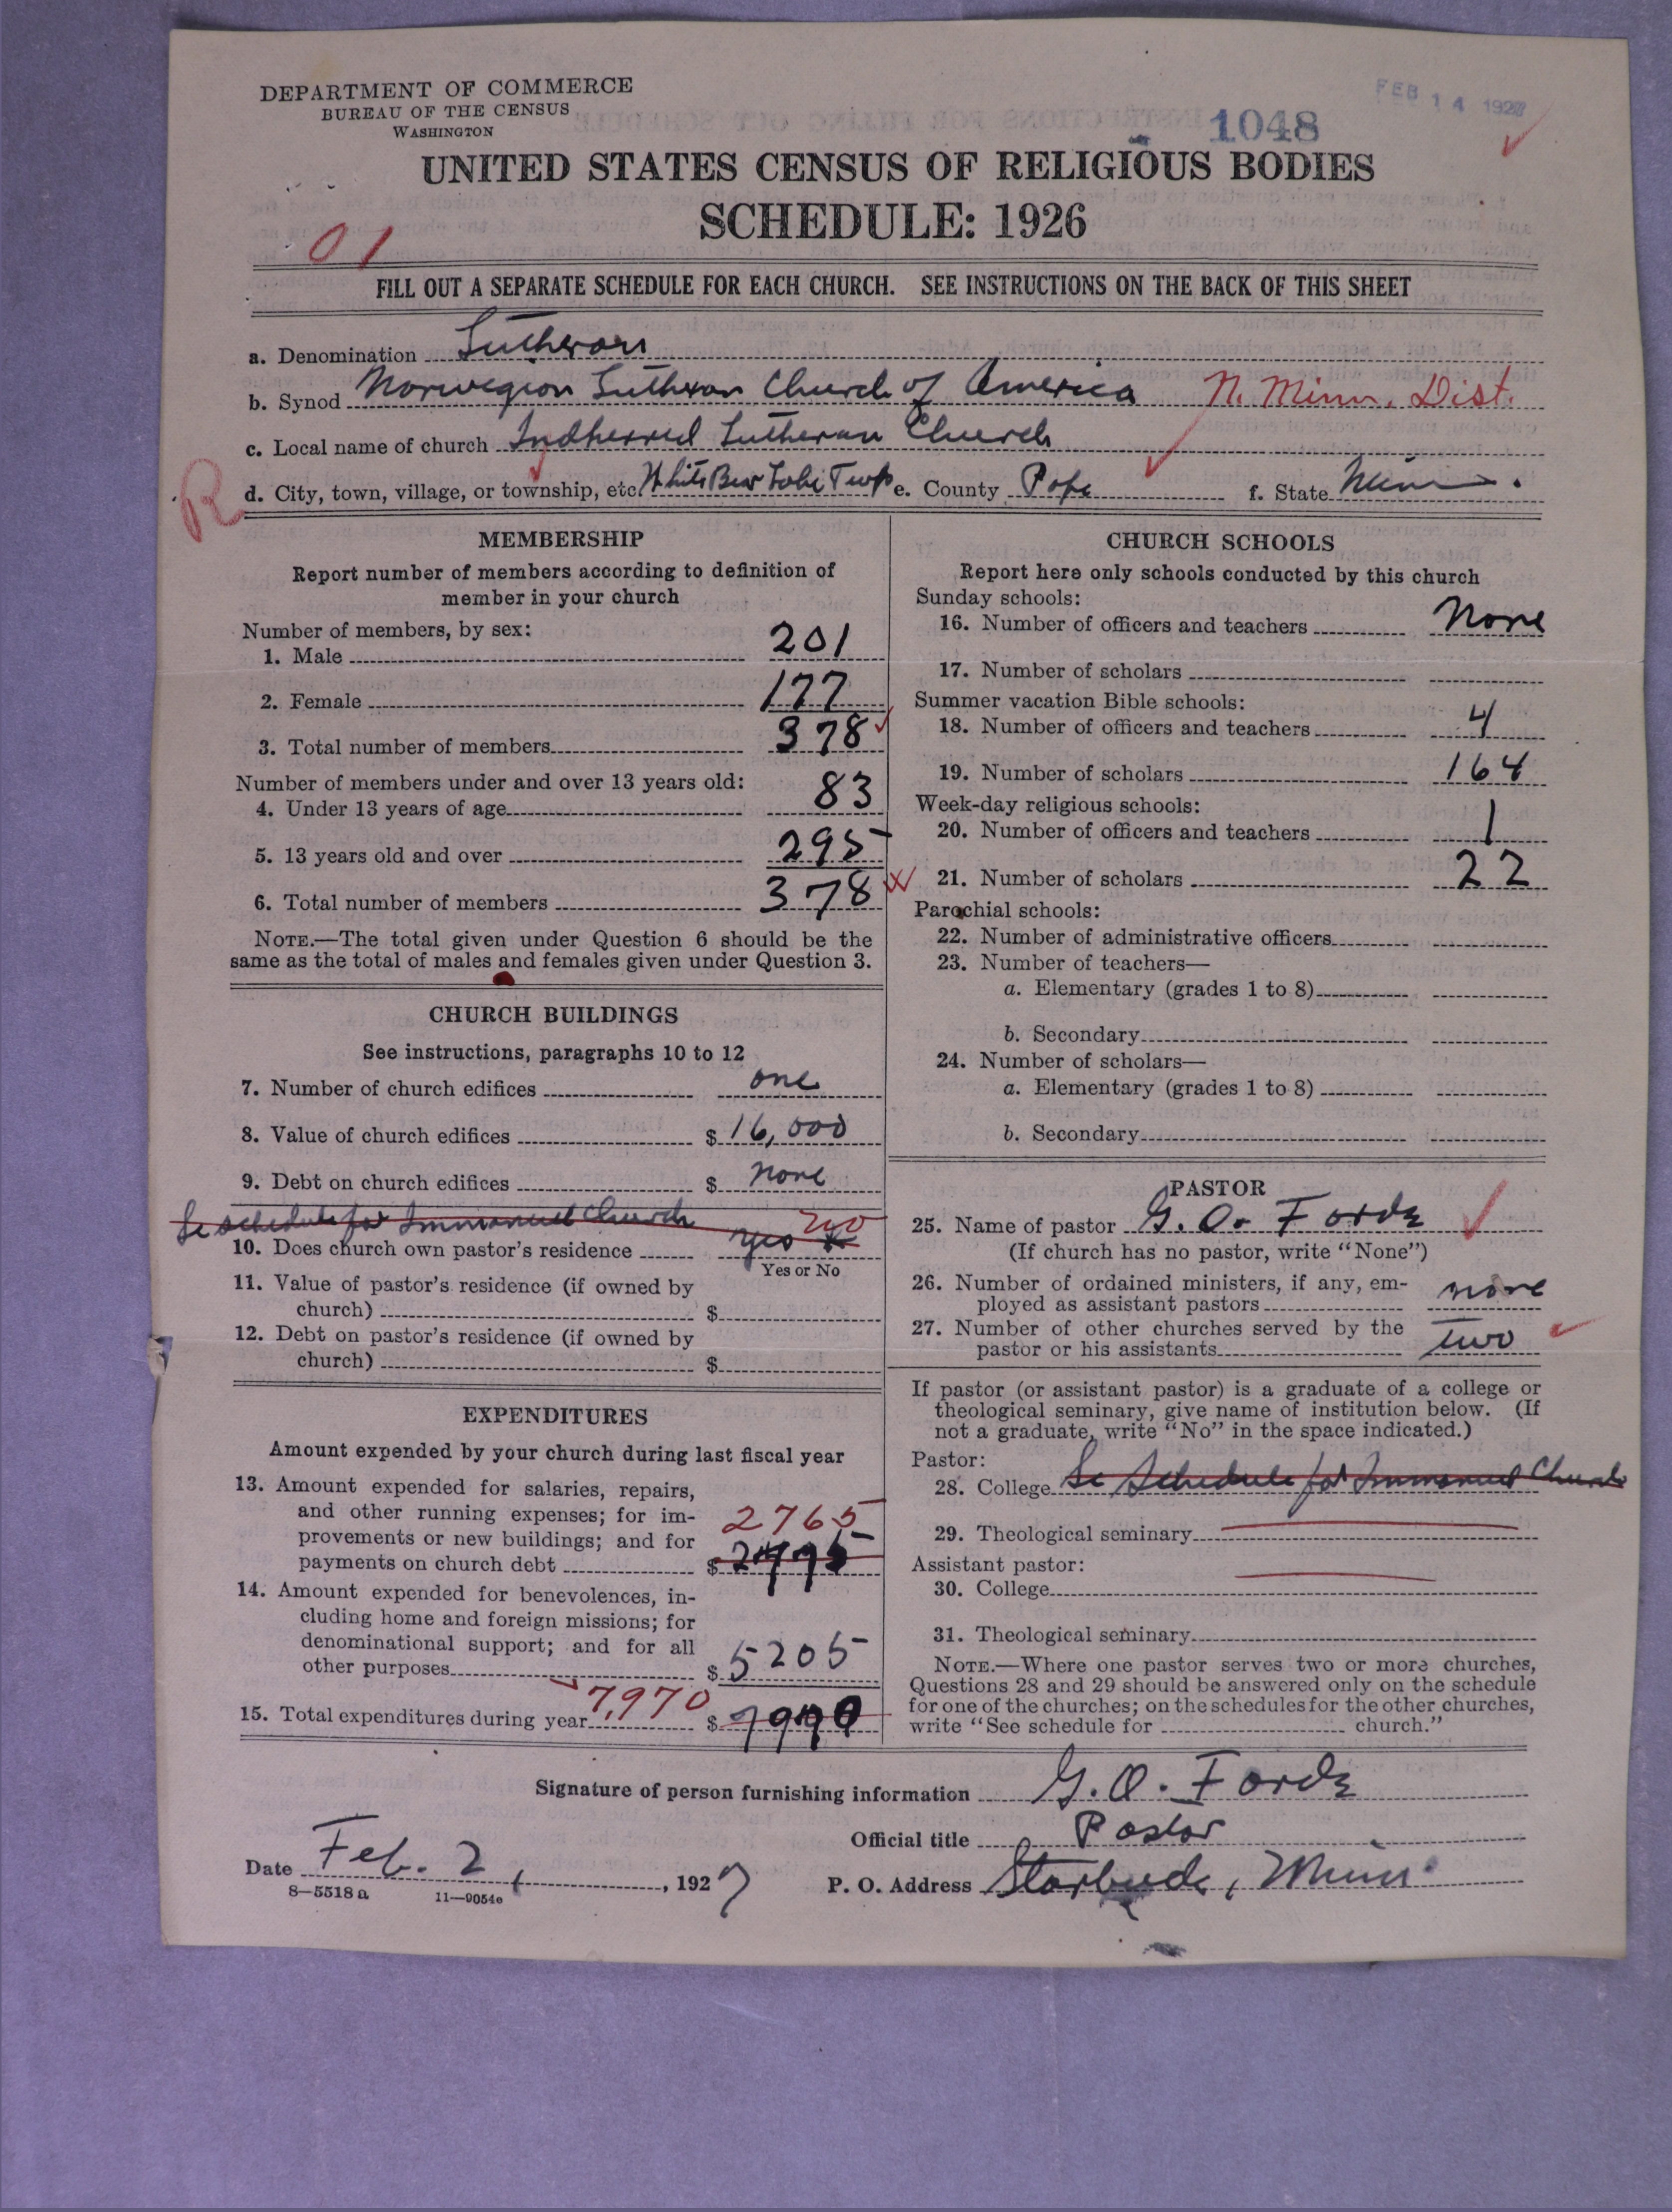 DEPARTMENT OF COMMERCE
BUREAU OF THE CENSUS
WASHINGTON
FEB 14 1927
1048
UNITED STATES CENSUS OF RELIGIOUS BODIES
SCHEDULE: 1926
01
FILL OUT A SEPARATE SCHEDULE FOR EACH CHURCH. SEE INSTRUCTIONS ON THE BACK OF THIS SHEET
a. Denomination Lutheran
b. Synod Norwegian Lutheran Church of America N. Minn. Dist.
c. Local name of church Indherred Lutheran Church
R
d. City, town, village, or township, etc. White Bear Lake Twp e. County Pope f. State Minn.
MEMBERSHIP
Report number of members according to definition of
member in your church
Number of members, by sex:
1. Male 201
2. Female 177
3. Total number of members 378
Number of members under and over 13 years old:
4. Under 13 years of age 83
5. 13 years old and over 295
6. Total number of members 378
NOTE.—The total given under Question 6 should be the
same as the total of males and females given under Question 3.
CHURCH BUILDINGS
See instructions, paragraphs 10 to 12
7. Number of church edifices one
8. Value of church edifices $ 16,000
9. Debt on church edifices $ none
Se schedule for Immanuel Church
10. Does church own pastor's residence yes no
Yes or No
11. Value of pastor's residence (if owned by
church) $
12. Debt on pastor's residence (if owned by
church) $
EXPENDITURES
Amount expended by your church during last fiscal year
13. Amount expended for salaries, repairs,
and other running expenses; for im-
provements or new buildings; and for
payments on church debt $ 2765
14. Amount expended for benevolences, in-
cluding home and foreign missions; for
denominational support; and for all
other purposes $ 5205
15. Total expenditures during year 7,970 $
CHURCH SCHOOLS
Report here only schools conducted by this church
Sunday schools:
16. Number of officers and teachers None
17. Number of scholars
Summer vacation Bible schools:
18. Number of officers and teachers 4
19. Number of scholars 164
Week-day religious schools:
20. Number of officers and teachers 1
21. Number of scholars 22
Parochial schools:
22. Number of administrative officers
23. Number of teachers—
a. Elementary (grades 1 to 8)
b. Secondary
24. Number of scholars—
a. Elementary (grades 1 to 8)
b. Secondary
PASTOR
25. Name of pastor G. O. Forde
(If church has no pastor, write "None")
26. Number of ordained ministers, if any, em-
ployed as assistant pastors none
27. Number of other churches served by the
pastor or his assistants two
If pastor (or assistant pastor) is a graduate of a college or
theological seminary, give name of institution below. (If
not a graduate, write "No" in the space indicated.)
Pastor:
28. College Se Schedule for Immanuel Church
29. Theological seminary
Assistant pastor:
30. College
31. Theological seminary
NOTE.—Where one pastor serves two or more churches,
Questions 28 and 29 should be answered only on the schedule
for one of the churches; on the schedules for the other churches,
write "See schedule for church."
Signature of person furnishing information G. O. Forde
Official title Pastor
Date Feb. 2, 1927
P. O. Address Starbuck, Minn.
8—5518 a 11—9054c